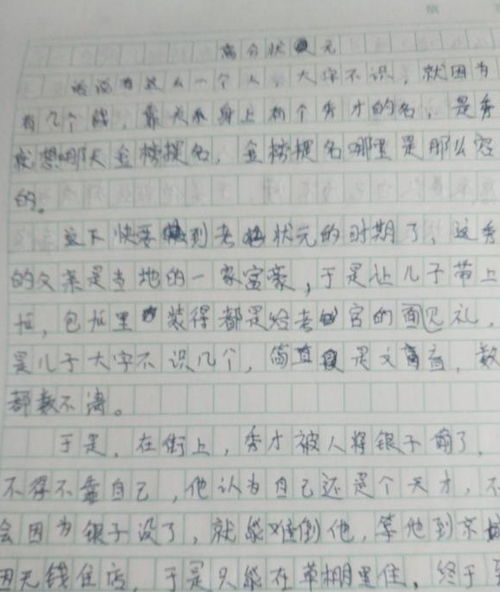 高分状元
话说有这么一个人，大字不识，就因为
有几个钱，靠关系身上有个秀才的名，是秀
就想哪天金榜提名，金榜提名哪里是那么容
的。
这下快要到考状元的时期了，这秀
的父亲是当地的一家富豪，于是让儿子带上
包里装得都是给考官的面见礼，
是儿子大字不识几个，简直是文盲，数
都数不清。
于是，在街上，秀才被人将银子骗了，
不得不靠自己，他认为自己还是个天才，不
会因为银子没了，就能难倒他，等他到京城
因无钱住店，于是只能在草棚里住，终于到